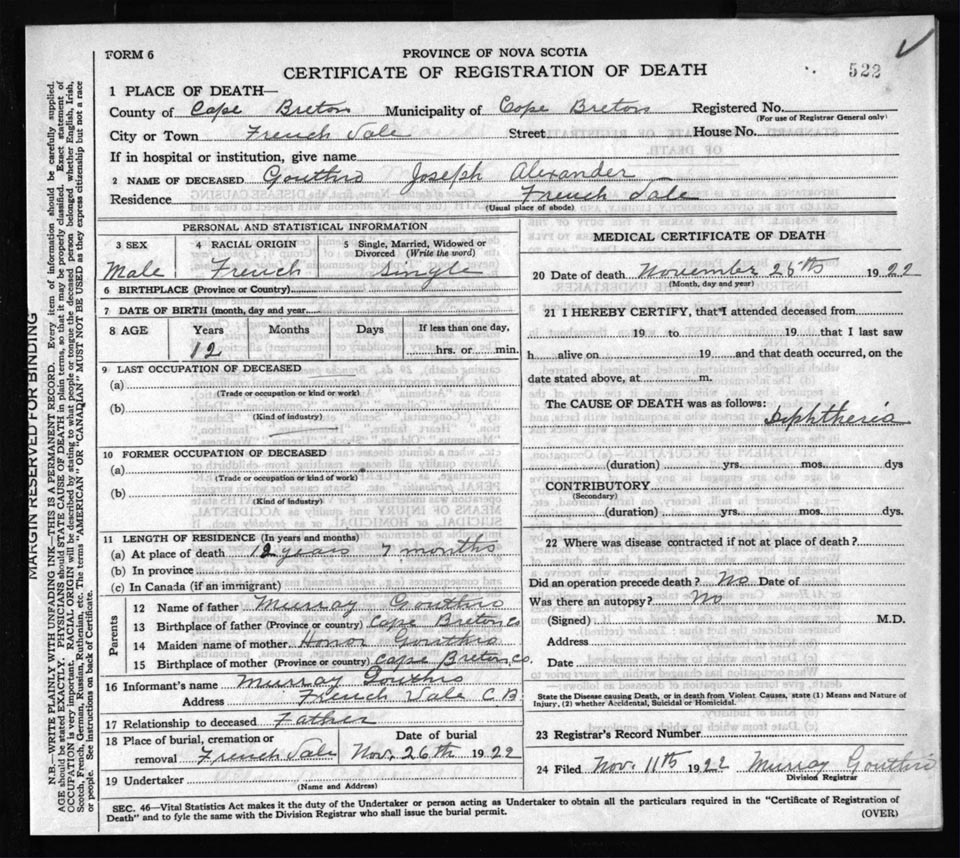 FORM 6
PROVINCE OF NOVA SCOTIA
CERTIFICATE OF REGISTRATION OF DEATH
522
1 PLACE OF DEATH—
County of Cape Breton Municipality of Cape Breton Registered No.
(For use of Registrar General only)
City or Town French Vale Street House No.
If in hospital or institution, give name
2 NAME OF DECEASED Gouthro Joseph Alexander
Residence French Vale
(Usual place of abode)
PERSONAL AND STATISTICAL INFORMATION
3 SEX 4 RACIAL ORIGIN 5 Single, Married, Widowed or Divorced (Write the word)
Male French Single
6 BIRTHPLACE (Province or Country)
7 DATE OF BIRTH (month, day and year)
8 AGE Years Months Days If less than one day,
12 hrs. or min.
9 LAST OCCUPATION OF DECEASED
(a)
(Trade or occupation or kind or work)
(b)
(Kind of industry)
10 FORMER OCCUPATION OF DECEASED
(a)
(Trade or occupation or kind of work)
(b)
(Kind of industry)
11 LENGTH OF RESIDENCE (In years and months)
(a) At place of death 12 years 7 months
(b) In province
(c) In Canada (if an immigrant)
Parents
12 Name of father Murray Gouthro
13 Birthplace of father (Province or country) Cape Breton Co
14 Maiden name of mother Honor Gouthro
15 Birthplace of mother (Province or country) Cape Breton Co.
16 Informant's name Murray Gouthro
Address French Vale C.B.
17 Relationship to deceased Father
18 Place of burial, cremation or removal French Vale Date of burial Nov. 26th 1922
19 Undertaker
(Name and Address)
MEDICAL CERTIFICATE OF DEATH
20 Date of death November 26th 1922
(Month, day and year)
21 I HEREBY CERTIFY, that I attended deceased from
19 to 19 that I last saw
h alive on 19 and that death occurred, on the
date stated above, at m.
The CAUSE OF DEATH was as follows:
Diphtheria
(duration) yrs. mos. dys
CONTRIBUTORY
(Secondary)
(duration) yrs. mos. dys.
22 Where was disease contracted if not at place of death?
Did an operation precede death? No Date of
Was there an autopsy? No
(Signed) M.D.
Address
Date
State the Disease causing Death, or in death from Violent Causes, state (1) Means and Nature of
Injury, (2) whether Accidental, Suicidal or Homicidal.
23 Registrar's Record Number
24 Filed Nov. 11th 1922 Murray Gouthro
Division Registrar
SEC. 46—Vital Statistics Act makes it the duty of the Undertaker or person acting as Undertaker to obtain all the particulars required in the "Certificate of Registration of
Death" and to fyle the same with the Division Registrar who shall issue the burial permit.
(OVER)
MARGIN RESERVED FOR BINDING
N.B.—WRITE PLAINLY WITH UNFADING INK—THIS IS A PERMANENT RECORD. Every item of information should be carefully supplied.
AGE should be stated EXACTLY. PHYSICIANS should STATE CAUSE OF DEATH in plain terms, so that it may be properly classified. Exact statement of
OCCUPATION is very important. RACIAL ORIGIN will be described by stating to what people or tongue the deceased person belonged whether English, Irish,
Scotch, French, German, Russian, Ruthenian, etc. The terms "AMERICAN" OR "CANADIAN" MUST NOT BE USED as they express citizenship but not a race
or people. See instructions on back of Certificate.